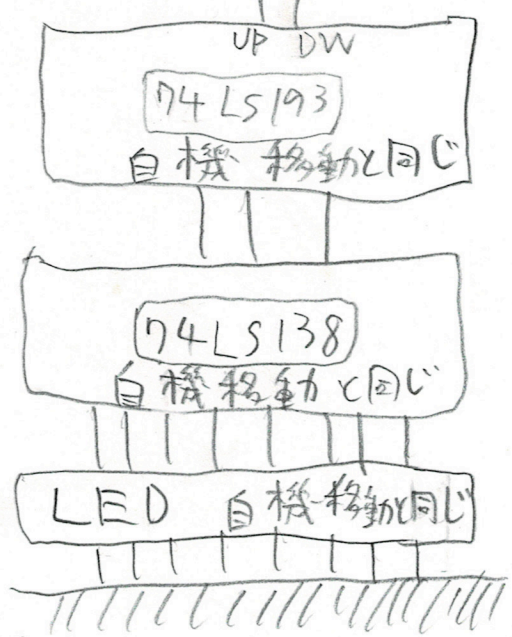 UP DW
74LS193
自機移動と同じ
74LS138
自機移動と同じ
LED 自機移動と同じ